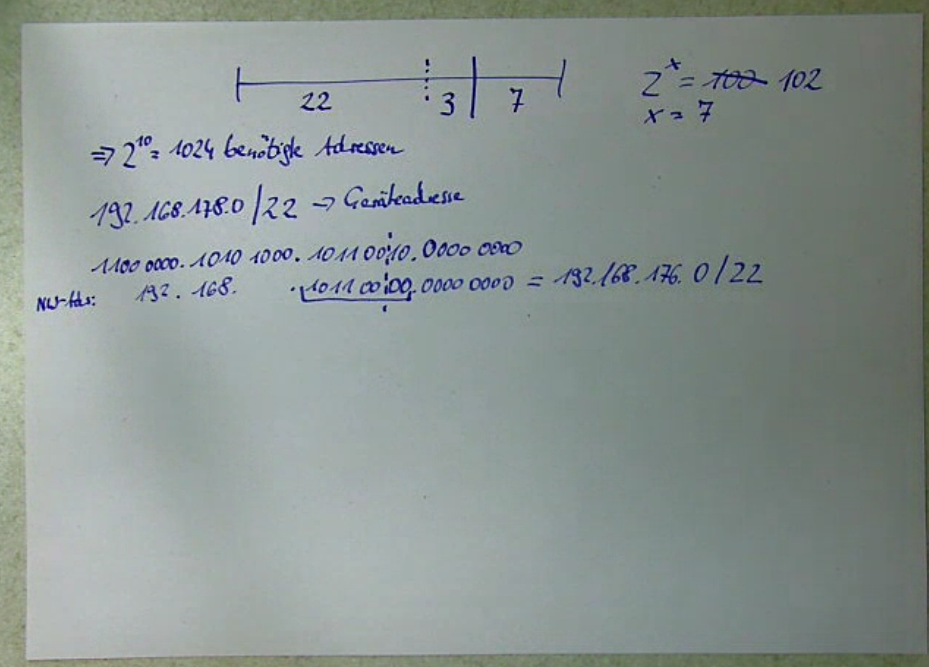 22 3 7
2^x = 100 102
x = 7
=> 2^10 = 1024 benötigte Adressen
192.168.178.0 / 22 -> Geräteadresse
1100 0000. 1010 1000. 1011 0010. 0000 0000
NW-Ads: 192. 168. .1011 0000.0000 0000 = 192.168.176.0/22